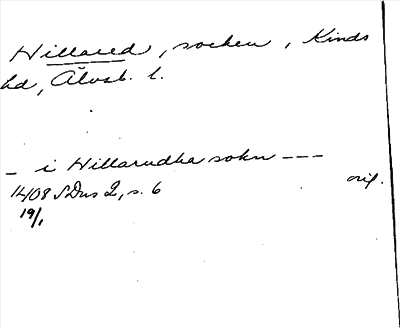 Hillared, socken, Kinds
hd, Älvsb. l.
– i Hillarudha sokn – – –
1408 SDns 2, s. 6 orig.
19/1